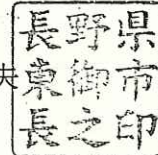 長野県
夫東御市
長之印